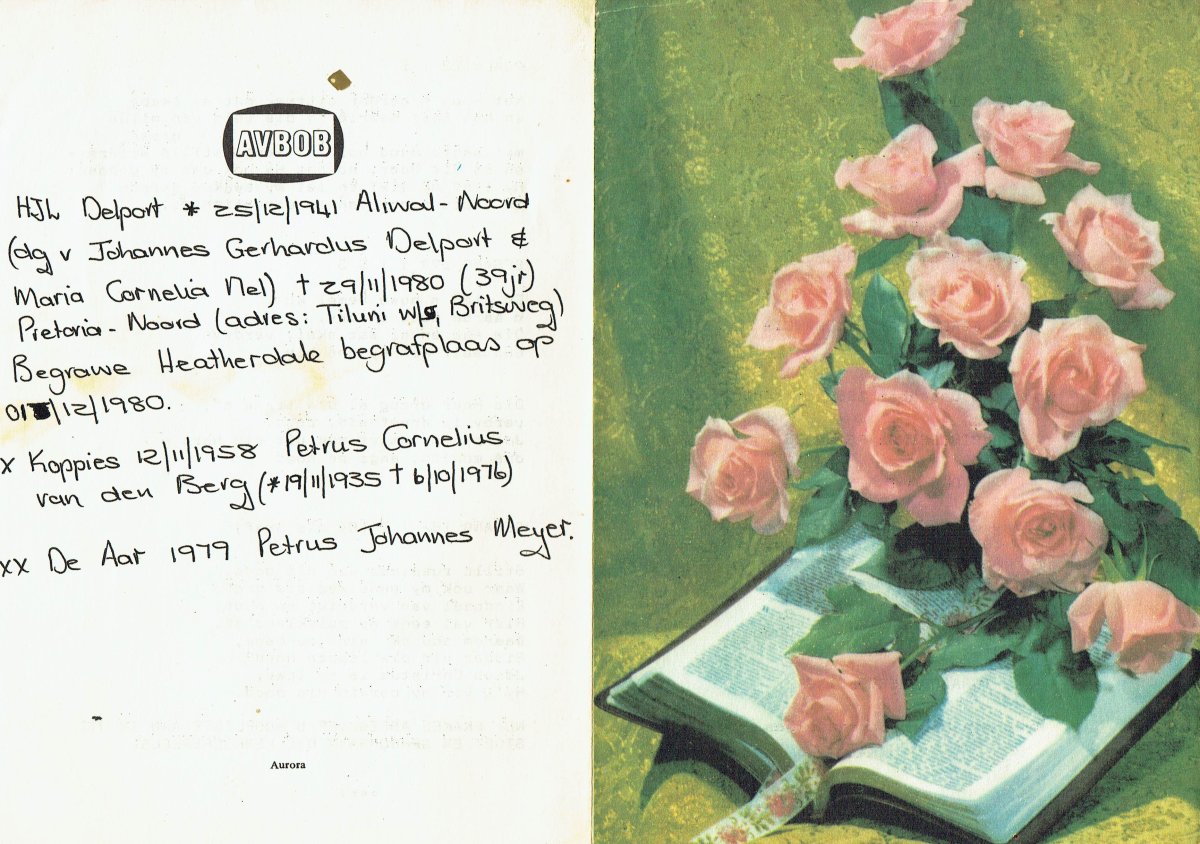 AVBOB
HJL Delport * 25/12/1941 Aliwal-Noord
(dg v Johannes Gerhardus Delport &
Maria Cornelia Nel) † 29/11/1980 (39jr)
Pretoria-Noord (adres: Tiluni Britsweg)
Begrawe Heatherdale begrafplaas op
01/12/1980.
x Koppies 12/11/1958 Petrus Cornelius
van den Berg (*19/11/1935 † 6/10/1976)
xx De Aar 1979 Petrus Johannes Meyer.
Aurora